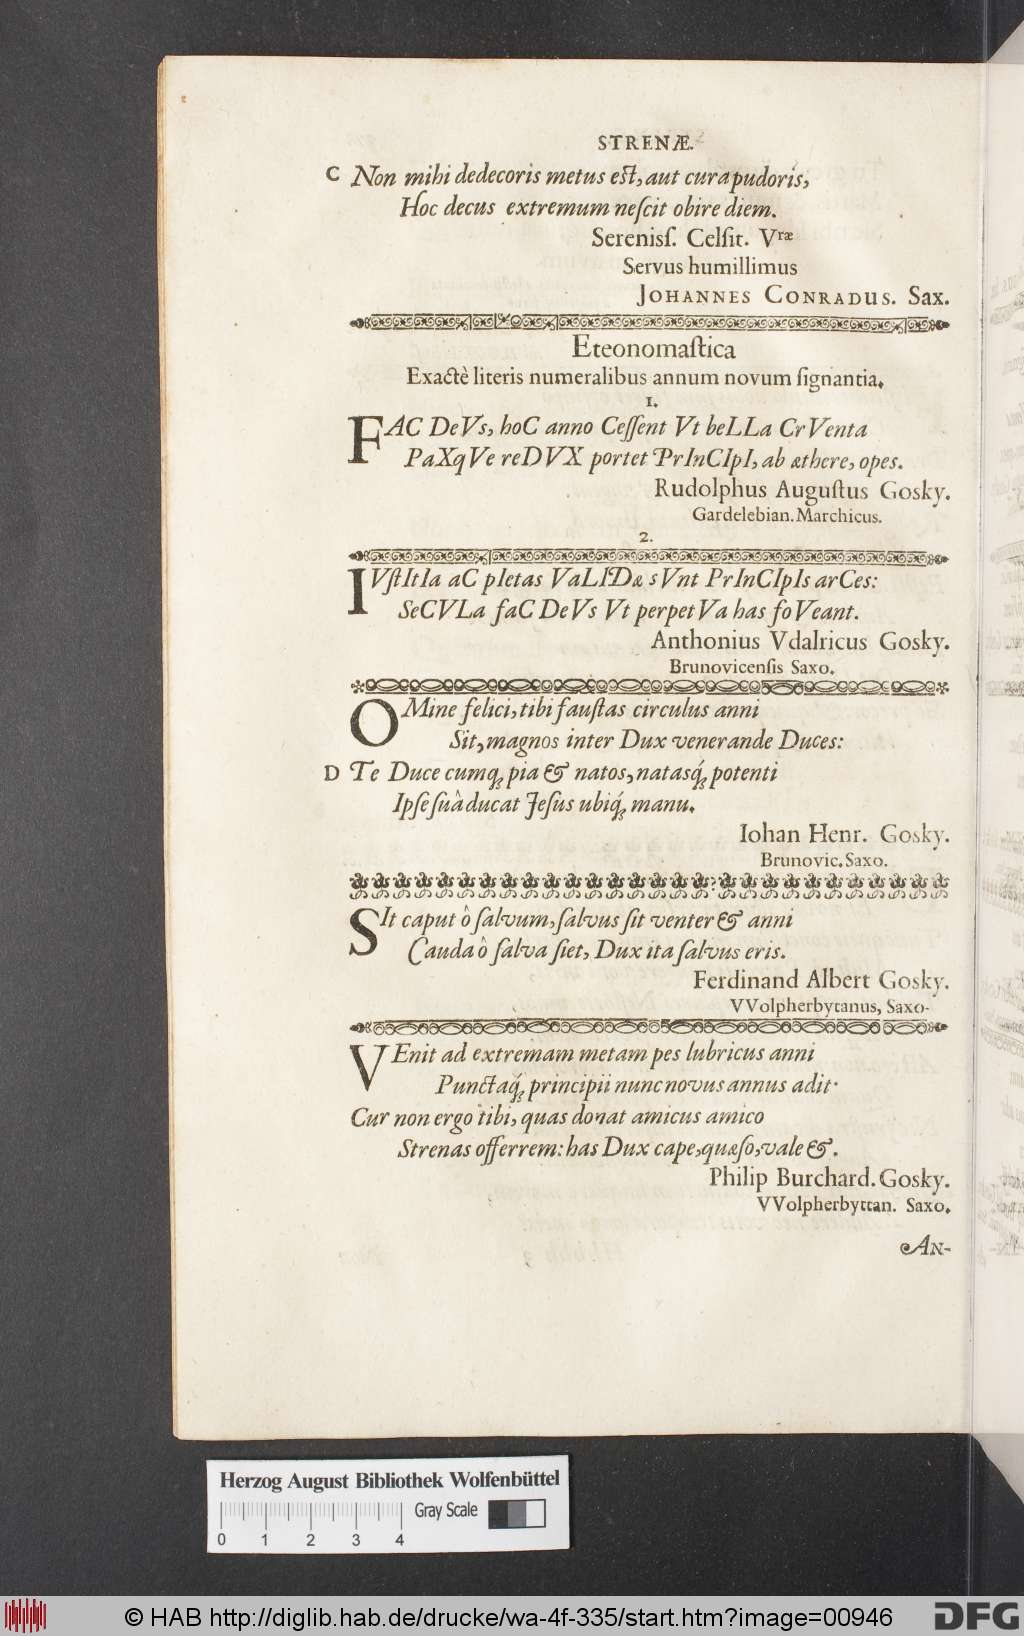 STRENÆ.
C Non mihi dedecoris metus est, aut cura pudoris,
Hoc decus extremum neſcit obire diem.
Sereniſſ. Celſit. Vræ
Servus humillimus
JOHANNES CONRADUS. Sax.
Eteonomaſtica
Exactè literis numeralibus annum novum ſignantia.
1.
FAC DeVs, hoC anno Ceſſent Vt beLLa CrVenta
PaXqVe reDVX portet PrInCIpI, ab æthere, opes.
Rudolphus Auguſtus Gosky.
Gardelebian. Marchicus.
2.
IVſtItIa aC pIetas VaLIDæ sVnt PrInCIpIs arCes:
SeCVLa faC DeVs Vt perpetVa has foVeant.
Anthonius Vdalricus Gosky.
Brunovicenſis Saxo.
OMine felici, tibi fauſtas circulus anni
Sit, magnos inter Dux venerande Duces:
D Te Duce cumq́; pia & natos, natasq́; potenti
Ipſe ſuâ ducat Jeſus ubiq́; manu.
Iohan Henr. Gosky.
Brunovic. Saxo.
SIt caput ô ſalvum, ſalvus ſit venter & anni
Cauda ô ſalva ſiet, Dux ita ſalvus eris.
Ferdinand Albert Gosky.
VVolpherbytanus, Saxo.
VEnit ad extremam metam pes lubricus anni
Punctaq́; principii nunc novus annus adit.
Cur non ergo tibi, quas donat amicus amico
Strenas offerrem: has Dux cape, quæſo, vale &.
Philip Burchard. Gosky.
VVolpherbyttan. Saxo.
AN-
Herzog August Bibliothek Wolfenbüttel
Gray Scale
0 1 2 3 4
© HAB http://diglib.hab.de/drucke/wa-4f-335/start.htm?image=00946
DFG